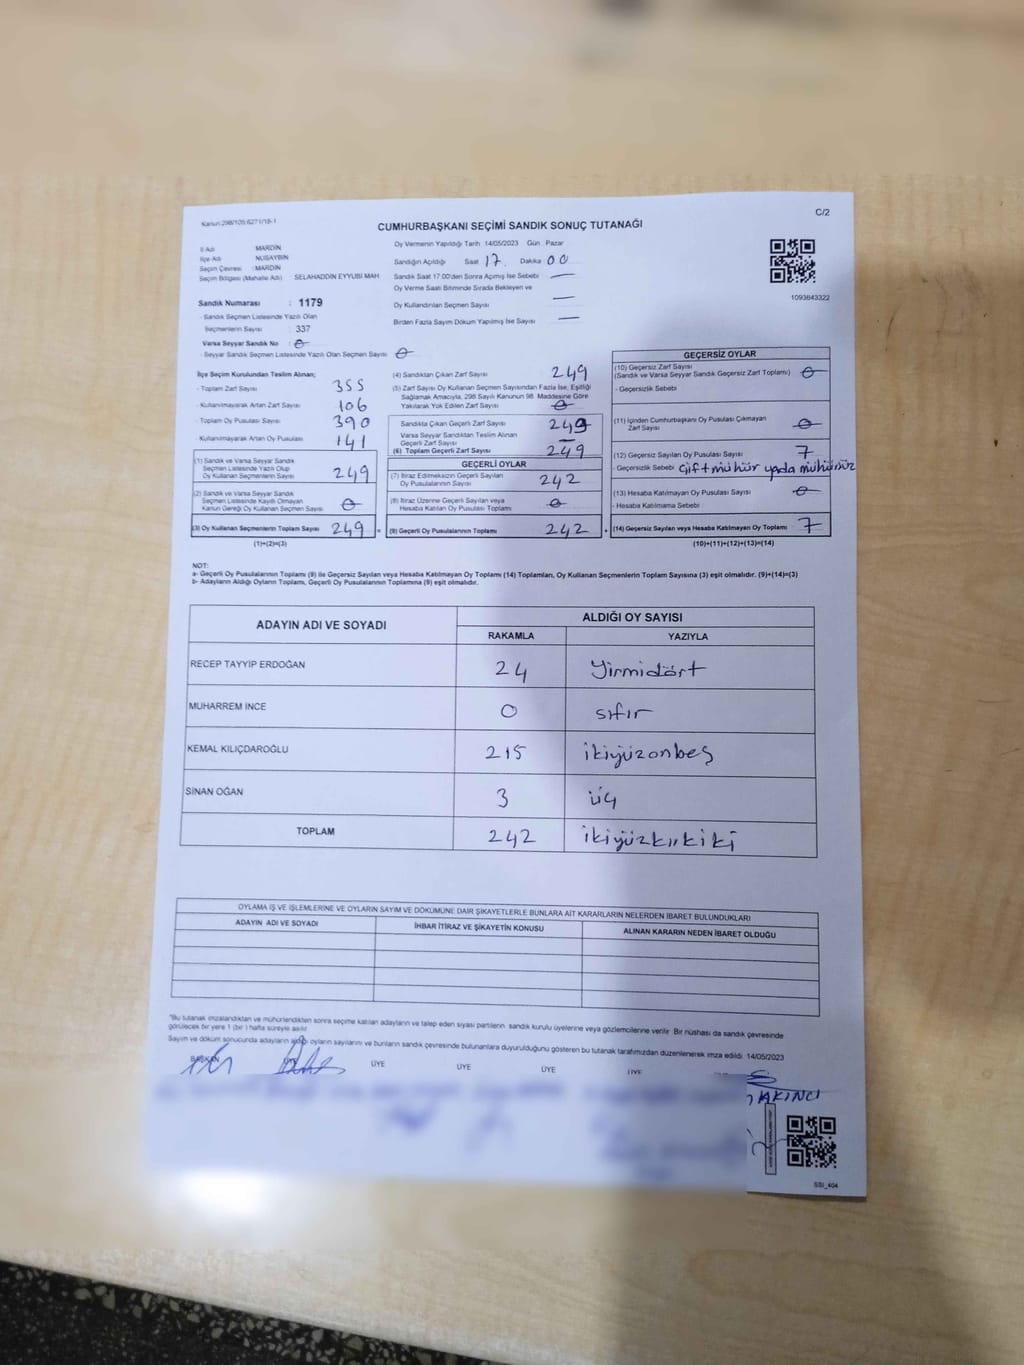 Kanun:298/105;6271/18-1
C/2
CUMHURBAŞKANI SEÇİMİ SANDIK SONUÇ TUTANAĞI
İl Adı : MARDİN
İlçe Adı : NUSAYBİN
Seçim Çevresi : MARDİN
Seçim Bölgesi (Mahalle Adı) : SELAHADDİN EYYUBİ MAH.
Oy Vermenin Yapıldığı Tarih 14/05/2023 Gün : Pazar
Sandığın Açıldığı Saat 17. Dakika 00
Sandık Saat 17.00'den Sonra Açılmış İse Sebebi —
Oy Verme Saati Bitiminde Sırada Bekleyen ve
Oy Kullandırılan Seçmen Sayısı —
Birden Fazla Sayım Döküm Yapılmış İse Sayısı —
1093643322
Sandık Numarası : 1179
- Sandık Seçmen Listesinde Yazılı Olan
Seçmenlerin Sayısı : 337
Varsa Seyyar Sandık No : 0
- Seyyar Sandık Seçmen Listesinde Yazılı Olan Seçmen Sayısı 0
İlçe Seçim Kurulundan Teslim Alınan;
- Toplam Zarf Sayısı 355
- Kullanılmayarak Artan Zarf Sayısı 106
- Toplam Oy Pusulası Sayısı 390
- Kullanılmayarak Artan Oy Pusulası 141
(1) Sandık ve Varsa Seyyar Sandık
Seçmen Listesinde Yazılı Olup
Oy Kullanan Seçmenlerin Sayısı 249
(2) Sandık ve Varsa Seyyar Sandık
Seçmen Listesinde Kayıtlı Olmayan
Kanun Gereği Oy Kullanan Seçmen Sayısı 0
(3) Oy Kullanan Seçmenlerin Toplam Sayısı 249 =
(1)+(2)=(3)
(4) Sandıktan Çıkan Zarf Sayısı 249
(5) Zarf Sayısı Oy Kullanan Seçmen Sayısından Fazla İse, Eşitliği
Sağlamak Amacıyla, 298 Sayılı Kanunun 98. Maddesine Göre
Yakılarak Yok Edilen Zarf Sayısı 0
Sandıkta Çıkan Geçerli Zarf Sayısı 249
Varsa Seyyar Sandıktan Teslim Alınan
Geçerli Zarf Sayısı —
(6) Toplam Geçerli Zarf Sayısı 249
GEÇERLİ OYLAR
(7) İtiraz Edilmeksizin Geçerli Sayılan
Oy Pusulalarının Sayısı 242
(8) İtiraz Üzerine Geçerli Sayılan veya
Hesaba Katılan Oy Pusulası Toplamı 0
(9) Geçerli Oy Pusulalarının Toplamı 242 +
GEÇERSİZ OYLAR
(10) Geçersiz Zarf Sayısı
(Sandık ve Varsa Seyyar Sandık Geçersiz Zarf Toplamı) 0
- Geçersizlik Sebebi
(11) İçinden Cumhurbaşkanı Oy Pusulası Çıkmayan
Zarf Sayısı 0
(12) Geçersiz Sayılan Oy Pusulası Sayısı 7
- Geçersizlik Sebebi Çift mühür yada mühürsüz
(13) Hesaba Katılmayan Oy Pusulası Sayısı 0
- Hesaba Katılmama Sebebi
(14) Geçersiz Sayılan veya Hesaba Katılmayan Oy Toplamı 7
(10)+(11)+(12)+(13)=(14)
NOT:
a- Geçerli Oy Pusulalarının Toplamı (9) ile Geçersiz Sayılan veya Hesaba Katılmayan Oy Toplamı (14) Toplamları, Oy Kullanan Seçmenlerin Toplam Sayısına (3) eşit olmalıdır. (9)+(14)=(3)
b- Adayların Aldığı Oyların Toplamı, Geçerli Oy Pusulalarının Toplamına (9) eşit olmalıdır.
ADAYIN ADI VE SOYADI
ALDIĞI OY SAYISI
RAKAMLA YAZIYLA
RECEP TAYYİP ERDOĞAN 24 Yirmidört
MUHARREM İNCE 0 sıfır
KEMAL KILIÇDAROĞLU 215 ikiyüzonbeş
SİNAN OĞAN 3 üç
TOPLAM 242 ikiyüzkırkiki
OYLAMA İŞ VE İŞLEMLERİNE VE OYLARIN SAYIM VE DÖKÜMÜNE DAİR ŞİKAYETLERLE BUNLARA AİT KARARLARIN NELERDEN İBARET BULUNDUKLARI
ADAYIN ADI VE SOYADI İHBAR İTİRAZ VE ŞİKAYETİN KONUSU ALINAN KARARIN NEDEN İBARET OLDUĞU
"Bu tutanak imzalandıktan ve mühürlendikten sonra seçime katılan adayların ve talep eden siyasi partilerin sandık kurulu üyelerine veya gözlemcilerine verilir. Bir nüshası da sandık çevresinde
görülecek bir yere 1 (bir ) hafta süreyle asılır.
Sayım ve döküm sonucunda adayların aldığı oyların sayılarını ve bunların sandık çevresinde bulunanlara duyurulduğunu gösteren bu tutanak tarafımızdan düzenlenerek imza edildi. 14/05/2023
BAŞKAN ÜYE ÜYE ÜYE ÜYE ÜYE
AKINCI
SSİ_404